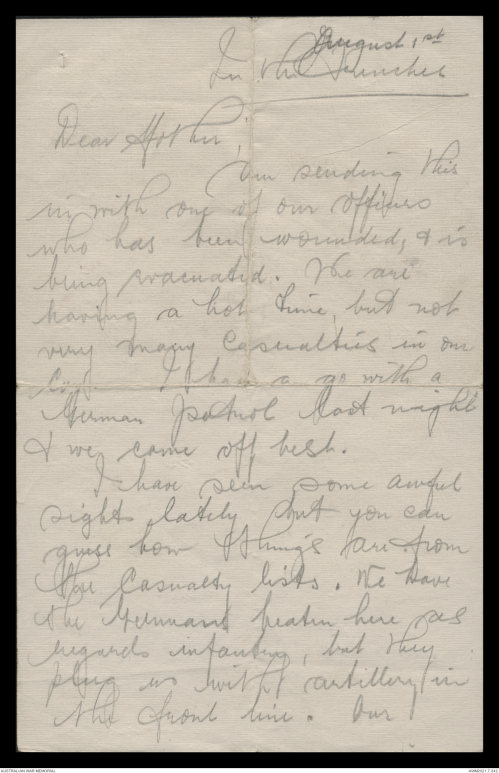 August 1st
In the Trenches
Dear Mother,
Am sending this
in with one of our Officers
who has been wounded, & is
being evacuated. We are
having a hot time, but not
very many Casualties in our
Coy. I had a go with a
German patrol last night
& we came off best.
I have seen some awful
sights lately but you can
guess how things are from
the Casualty lists. We have
the Germans beaten here as
regards infantry, but they
plug us with artillery in
the front line. Our
AUSTRALIAN WAR MEMORIAL